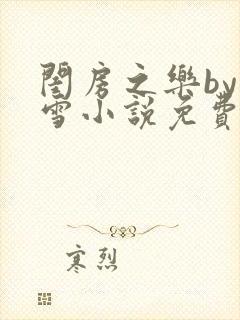 閨房之樂by
雪小說免費
寒烈